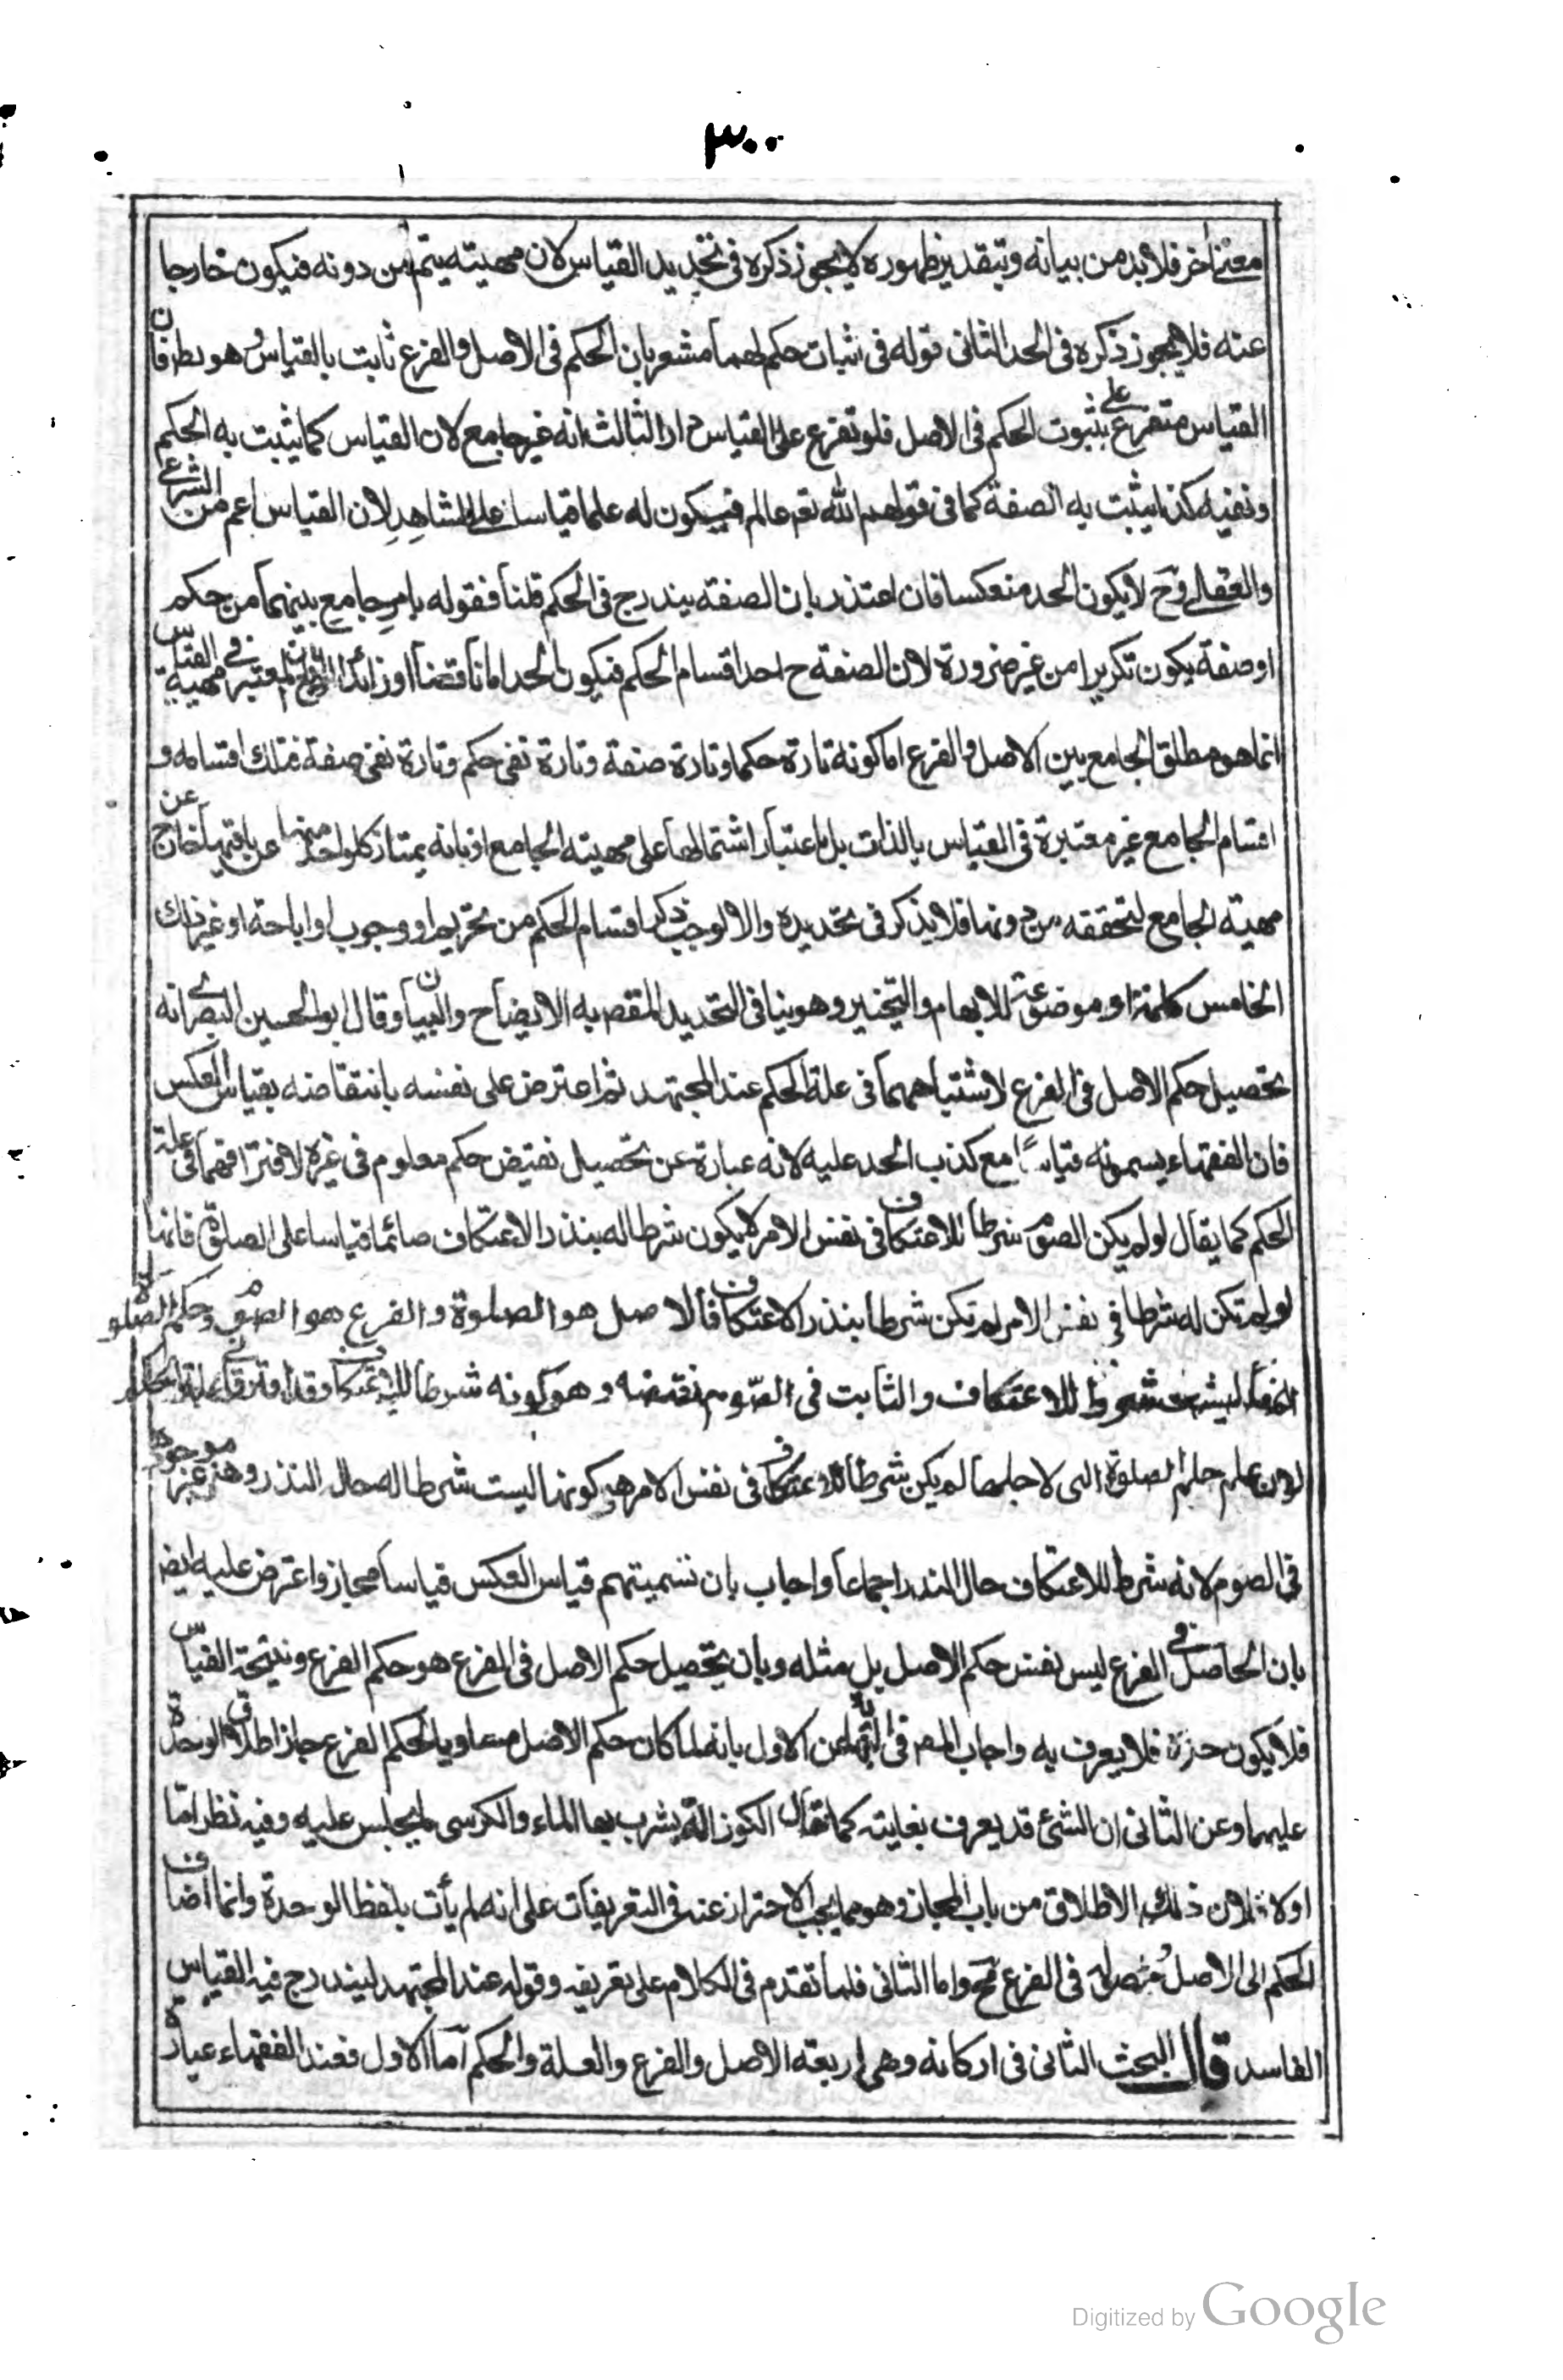 ٣٠٠
معنى اخر فلابد من بيانه وبتقدير ظهوره لا يجوز ذكره فى تحديد القياس لان مهيته يتم من دونه فيكون خارجا
عنه فلا يجوز ذكره فى الحد الثانى قوله فى اثبات حكم لهما مشعر بان الحكم فى الاصل والفرع ثابت بالقياس وهو بط فان
القياس متفرع على ثبوت الحكم فى الاصل فلو تفرع على القياس دار الثالث انه غير جامع لان القياس كما يثبت به الحكم
ونفيه كذا يثبت به الصفة كما فى قولهم الله تع عالم فيكون له علم قياسا على الشاهد لان القياس اعم من الشرعى
والعقلى وح لا يكون الحد منعكسا فان اعتذر بان الصفة يندرج فى الحكم قلنا فقوله بامر جامع بينهما من حكم
او صفة يكون تكريرا من غير ضرورة لان الصفة ح احد اقسام الحكم فيكون الحد اما ناقصا او زائدا المعتبر فى مهية القياس
انما هو مطلق الجامع بين الاصل والفرع اما كونه تارة حكما وتارة صفة وتارة نفى حكم وتارة نفى صفة فتلك اقسامه و
اقسام الجامع غير معتبرة فى القياس بالذات بل باعتبار اشتمالها على مهية الجامع اذ بانه يمتاز كل واحد منها عن باقيها خارج عن
مهية الجامع لتحققه من دونها فلا يذكر فى تحديده والا لوجب ذكر اقسام الحكم من تحريم او وجوب او اباحة او غير ذلك
الخامس كلمة او موضوعة للابهام والتخيير وهو ينافى التحديد المقصد به الايضاح والبيان وقال ابو الحسين البصرى انه
تحصيل حكم الاصل فى الفرع لاشتباههما فى علة الحكم عند المجتهد ثم اعترض على نفسه بانتقاضه بقياس العكس
فان الفقهاء يسمونه قياسا مع كذب الحد عليه لانه عبارة عن تحصيل نقيض حكم معلوم فى غيره لافتراقهما فى علة
الحكم كما يقال لو لم يكن الصوم شرطا للاعتكاف فى نفس الامر لا يكون شرطا له بنذر الاعتكاف صائما قياسا على الصلوة فانها
لو لم تكن له شرطا فى نفس الامر لم تكن شرطا بنذر الاعتكاف فالاصل هو الصلوة والفرع هو الصوم وحكم الصلوة
انها ليست شرطا للاعتكاف والثابت فى الصوم نقيضه وهو كونه شرطا للاعتكاف وقد افترقا فى علة الحكم
لان الصلوة التى لاجلها لم يكن شرطا للاعتكاف فى نفس الامر هو كونها ليست شرطا له حال النذر وهى غير موجودة
فى الصوم لانه شرط للاعتكاف حال النذر اجماعا واجاب بان تسميتهم قياس العكس قياسا مجاز واعترض عليه ايضا
بان الحاصل فى الفرع ليس نفس حكم الاصل بل مثله وبان تحصيل حكم الاصل فى الفرع هو حكم الفرع ونتيجة القياس
فلا يكون جزءه فلا يعرف به واجاب المص فى النها عن الاول بانه لما كان حكم الاصل مساويا لحكم الفرع جاز اطلاق الوحدة
عليهما وعن الثانى ان الشئ قد يعرف بغايته كما يقال الكوز الة يشرب بها الماء والكرسى ما يجلس عليه وفيه نظر اما
اولا فلان ذلك الاطلاق من باب المجاز وهو مما يجب الاحتراز عنه فى التعريفات على انه لم يأت بلفظ الوحدة وانما اضاف
الحكم الى الاصل فى الفرع واما الثانى فلما تقدم فى الكلام على تعريفه وقوله عند المجتهد ليندرج فيه القياس
الفاسد قال البحث الثانى فى اركانه وهى اربعة الاصل والفرع والعلة والحكم اما الاول فعند الفقهاء عبارة
Digitized by Google